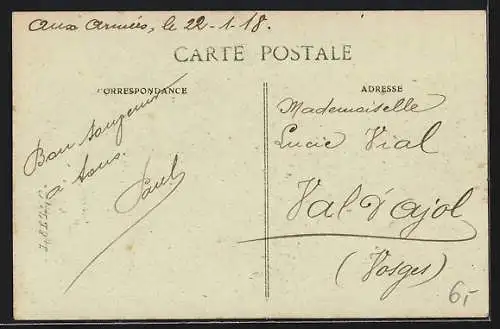 Aux Armées, le 22-1-18.
CARTE POSTALE
CORRESPONDANCE
ADRESSE
Bon
à tous.
Paul
Mademoiselle
Lucie Vial
Val-d'ajol
(Vosges)
6,-